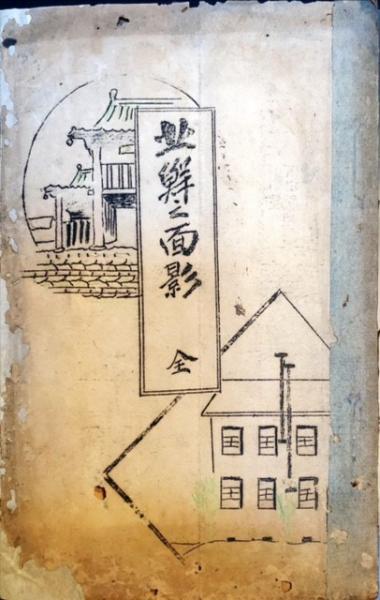 北鮮之面影
全